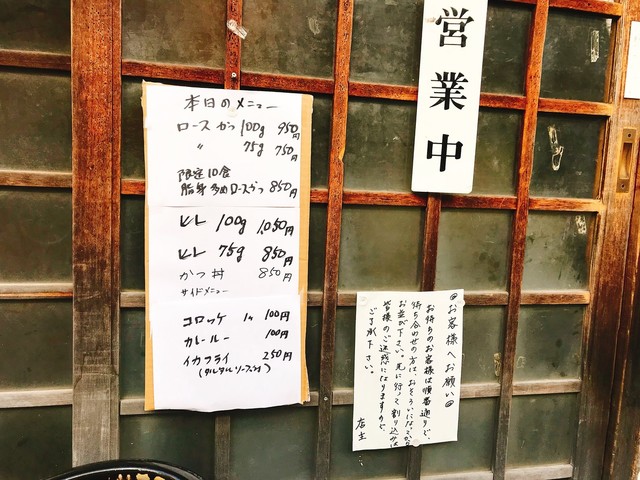 本日のメニュー
ロースかつ 100g 950円
〃 75g 750円
限定10食
脂身多めロースかつ 850円
ヒレ 100g 1,050円
ヒレ 75g 850円
かつ丼 850円
サイドメニュー
コロッケ 1ヶ 100円
カレールー 100円
イカフライ 250円
(タルタルソース付)
営業中
◎お客様へお願い◎
お待ちのお客様は順番通りで、
待ち合わせの方は、おそろいになってから
お並び下さい。先に行って割り込みは
皆様のご迷惑になりますので、
ご了承下さい。
店主